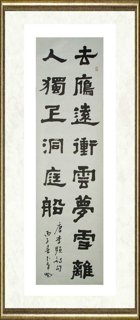 去雁遠衝雲夢雪離
人獨上洞庭船
唐李頻詩句